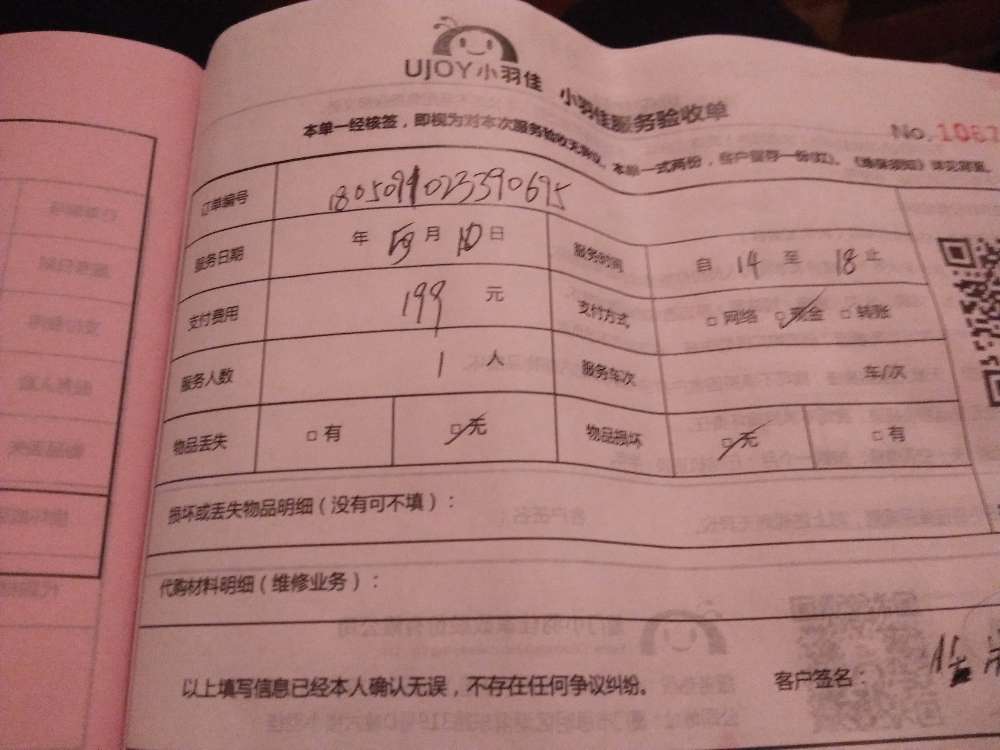 UJOY小羽佳 小羽佳服务验收单
本单一经核签，即视为对本次服务验收无异议。本单一式两份，客户留存一份(红)。《维保须知》详见背面。
No. 1087
订单编号 180509023390695
服务日期 年 5月 10日 服务时间 自 14 至 18 止
支付费用 199 元 支付方式 □ 网络 □ 现金 □ 转账
服务人数 1 人 服务车次 车/次
物品丢失 □ 有 □ 无 物品损坏 □ 无 □ 有
损坏或丢失物品明细（没有可不填）：
代购材料明细（维修业务）：
以上填写信息已经本人确认无误，不存在任何争议纠纷。 客户签名：